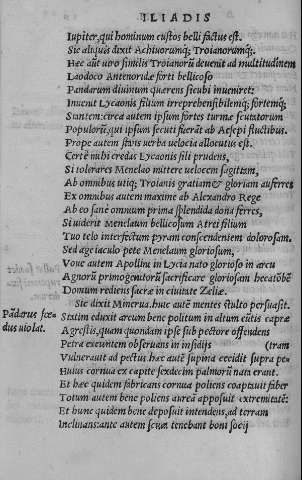 ILIADIS
Iupiter, qui hominum custos belli factus est.
Sic aliquis dixit Achiuorumq; Troianorumq;.
Hæc aũt uiro similis Troianorũ deuenit ad multitudinem
Laodoco Antenoridæ forti bellicoso
Pandarum diuinum quærens sicubi inueniret:
Inuenit Lycaonis filium irreprehensibilemq; fortemq;
Stantem: circa autem ipsum fortes turmæ scutatorum
Populorũ, qui ipsum secuti fuerãt ab Aesepi fluctibus.
Prope autem stans uerba uelocia allocutus est.
Certe mihi credas Lycaonis fili prudens,
Si tolerares Menelao mittere uelocem sagittam,
Ab omnibus utiq; Troianis gratiam & gloriam auferres
Ex omnibus autem maxime ab Alexandro Rege
Ab eo sane omnium prima splendida dona ferres,
Si uiderit Menelaum bellicosum Atrei filium
Tuo telo interfectum pyram conscendentem dolorosam.
Sed age iaculo pete Menelaum gloriosum,
Voue autem Apollini in Lycia nato glorioso in arcu
Agnorũ primogenitorũ sacrificare gloriosam hecatõbẽ
Domum rediens sacræ in ciuitate Zeliæ.
Sic dixit Minerua. huic autẽ mentes stulto persuasit.
Pãdarus fœ
dus uiolat.
Statim eduxit arcum bene politum in altum eũtis capræ
Agrestis, quam quondam ipse sub pectore offendens
Petra exeuntem obseruans in insidijs (tram
Vulnerauit ad pectus hæc autẽ supina cecidit supra pe-
Huius cornua ex capite sexdecim palmorũ nata erant.
Et hæc quidem fabricans cornua poliens coaptauit faber
Totum autem bene poliens aureã apposuit extremitatẽ:
Et hunc quidem bene deposuit intendens, ad terram
Inclinans: ante autem scuta tenebant boni socij